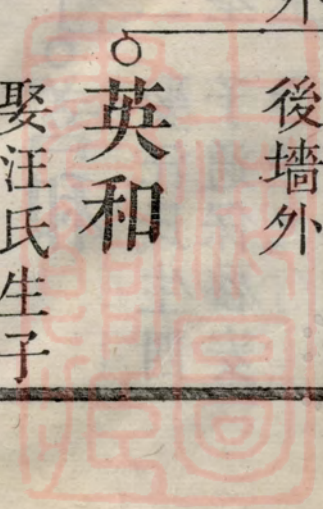 外
後墻外
英和
娶汪氏生子